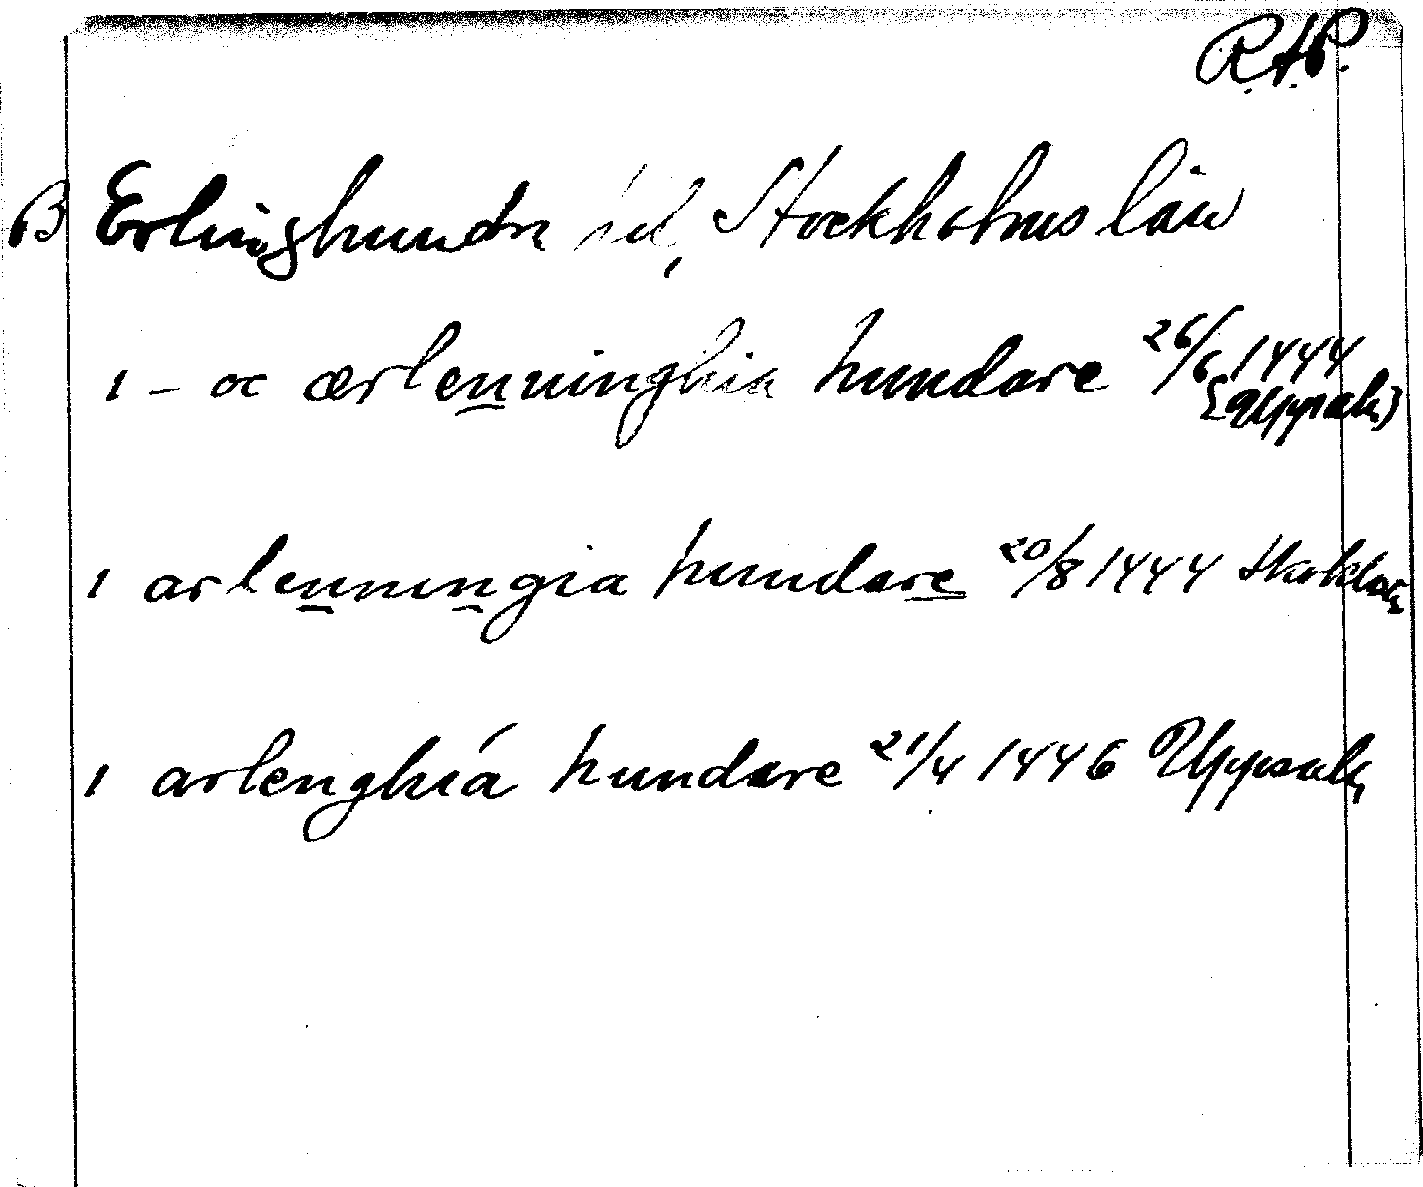 R.A.P.
B Erlinghundra hd, Stockholms län
1 - oc ærlenninghia hundare 26/6 1444
(Uppsala)
1 arlenningia hundare 20/8 1444 Skokloster
1 arlenghia hundare 21/4 1446 Uppsala